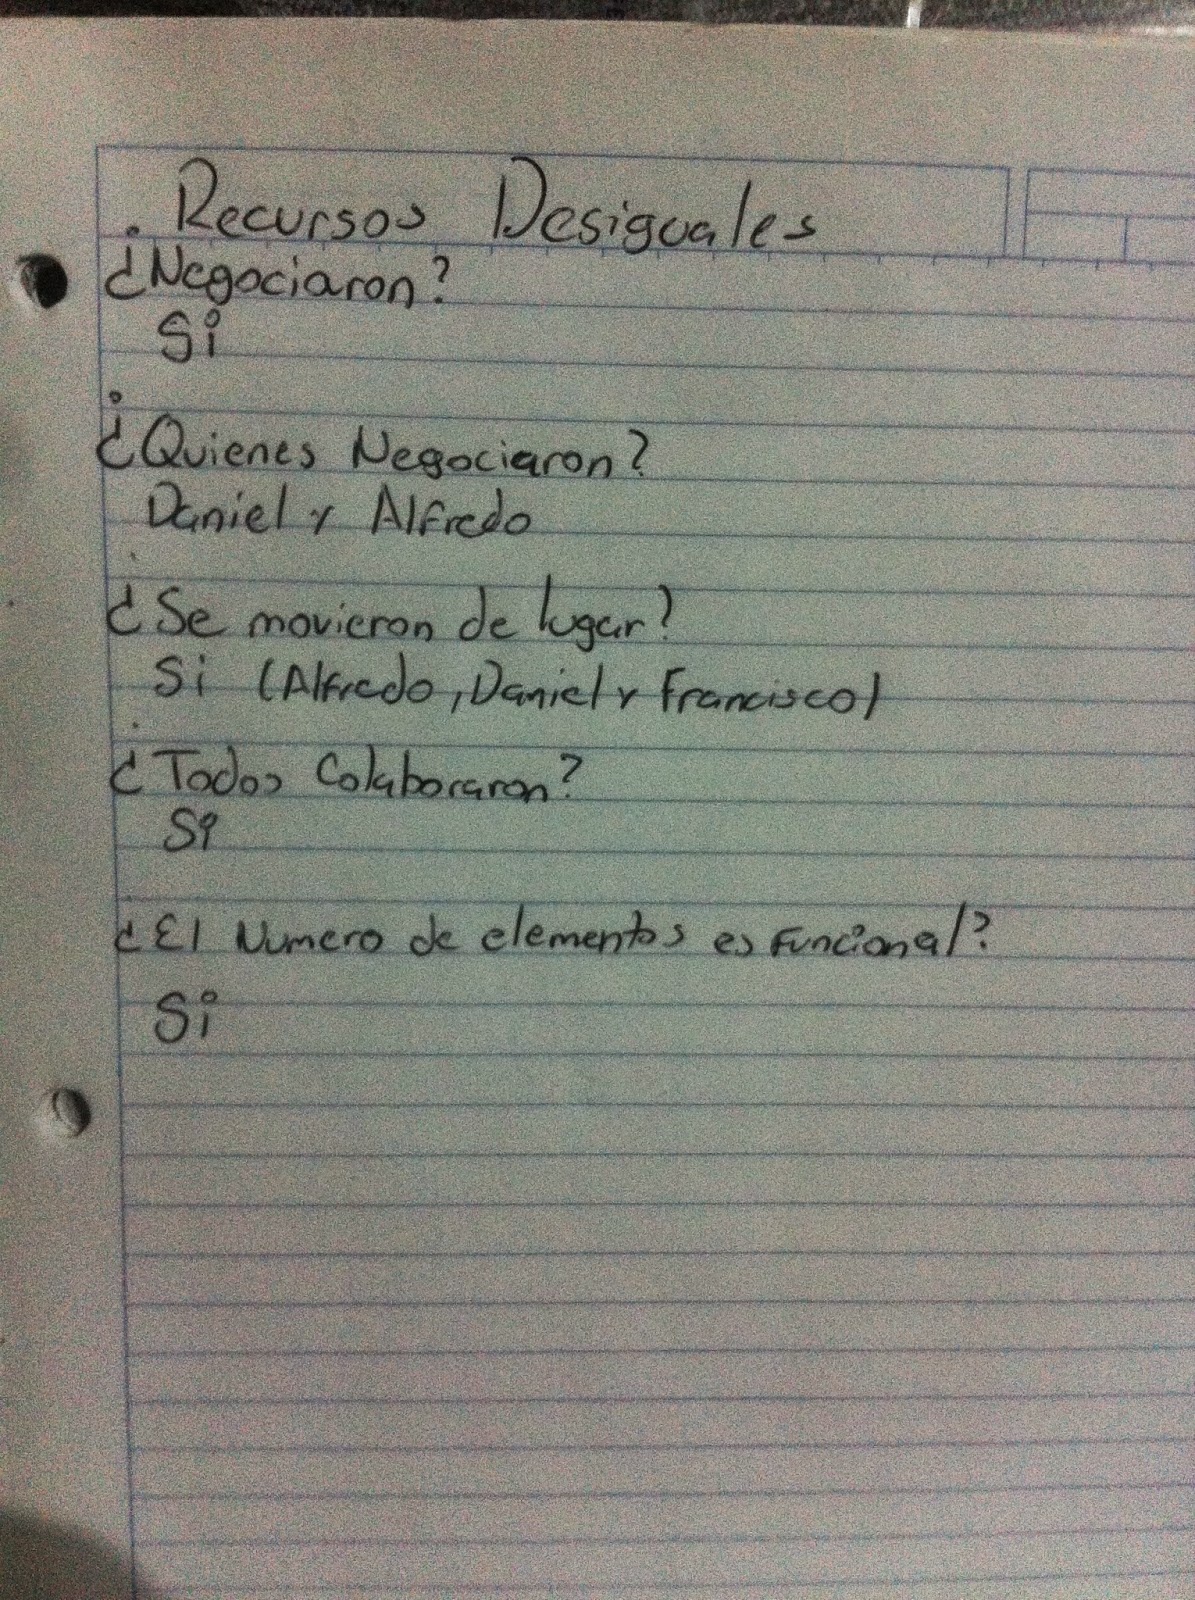 Recursos Desiguales
¿Negociaron?
Si
¿Quienes Negociaron?
Daniel y Alfredo
¿Se movieron de lugar?
Si (Alfredo, Daniel y Francisco)
¿Todos Colaboraron?
Si
¿El Numero de elementos es Funcional?
Si